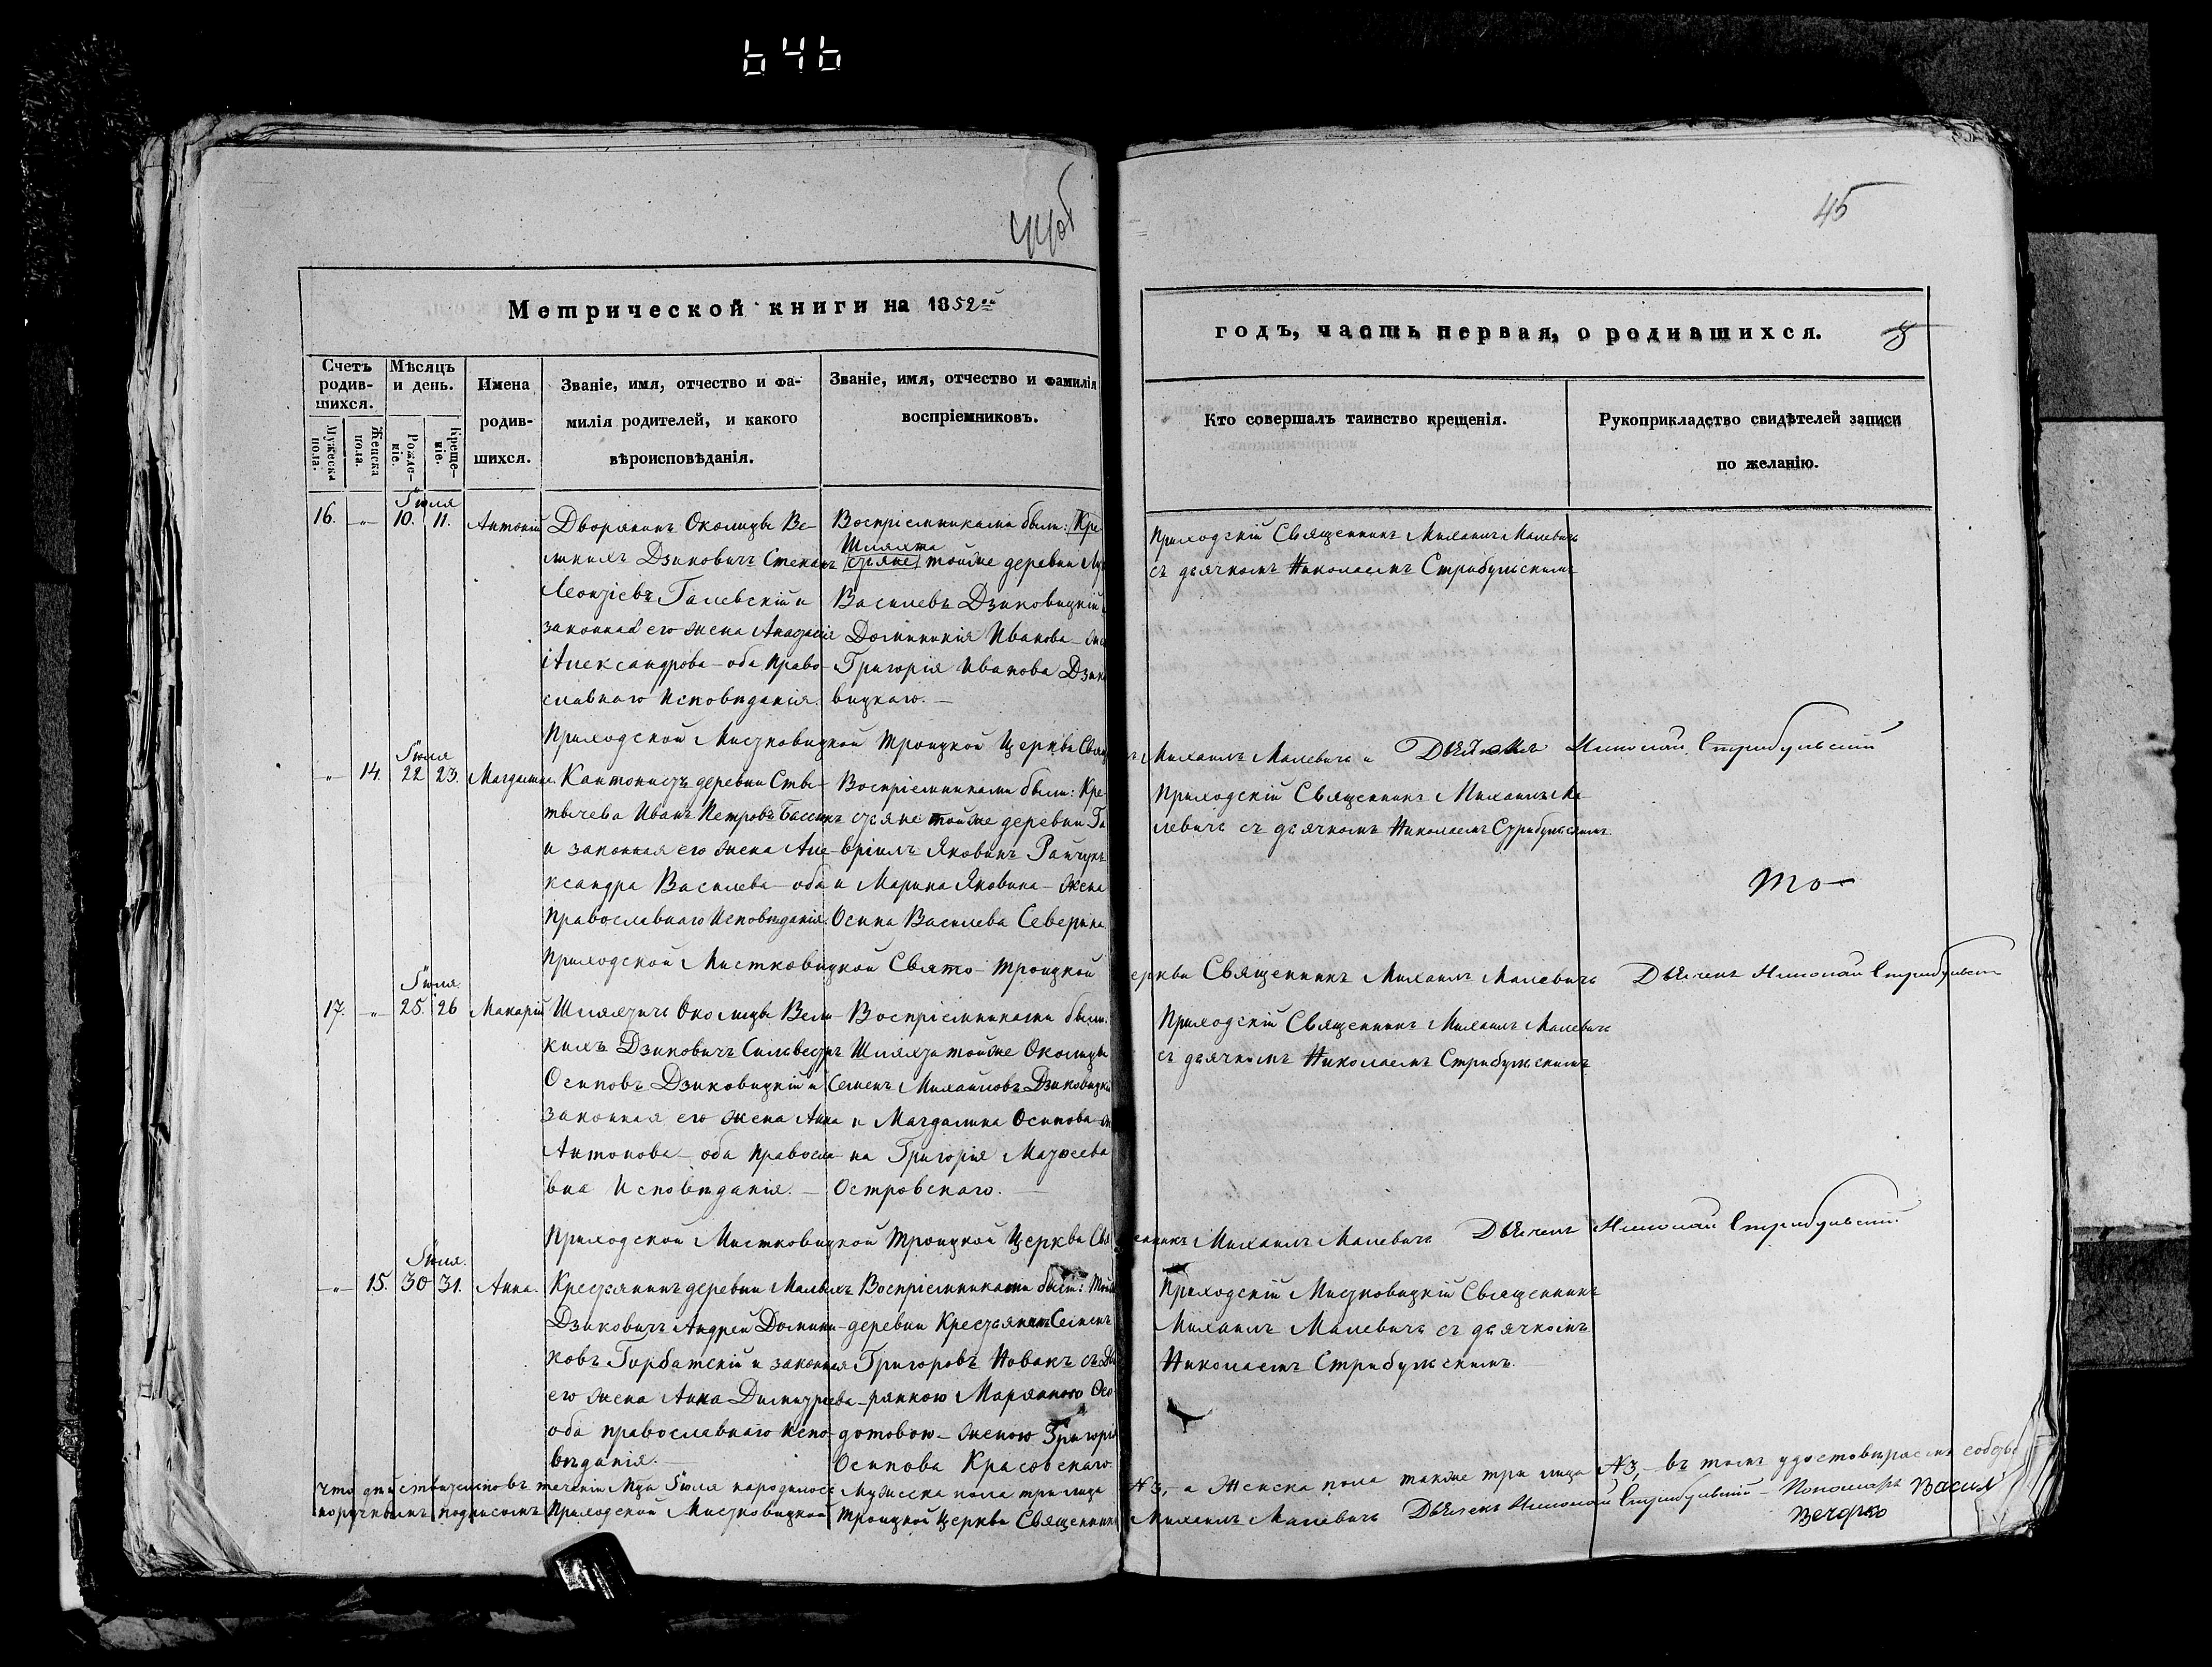 646
44об
45
Метрической книги на 1852ой
годъ, часть первая, о родившихся.
Счетъ родив-шихся.
Мужеска пола.
Женска пола.
Мѣсяцъ и день.
Рожде-ніе.
Креще-ніе.
Имена
родив-
шихся.
Званіе, имя, отчество и фа-
милія родителей, и какого
вѣроисповѣданія.
Званіе, имя, отчество и фамилія
воспріемниковъ.
Кто совершалъ таинство крещенія.
Рукоприкладство свидѣтелей записи
по желанію.
Іюля
16. -"- 10. 11. Антоній
Дворянинъ Околицы Ве-
ликихъ Дзиковичъ Степанъ
Леонтіевъ Галевскій и
законная его жена Анастасія
Александрова - оба Право-
славнаго Исповѣданія.
Воспріемниками были: Кре-
Шляхта
стьяне тойже деревни
Василевъ Дзиковицкій
Доминикія Иванова -
Григорія Иванова Дзико
вицкаго. -
Приходскій Священникъ Михаилъ Малевичъ
съ дьячкомъ Николаемъ Стрибульскимъ
Приходской Мистковицкой Троицкой Церкви
Михаилъ Малевичъ и Дьячокъ Николай Стрибульскій
Іюля
" 14. 22 23. Магдалина.
Кантонистъ деревни Ство-
тычева Иванъ Петровъ
и законная его жена Але-
ксандра Василева - оба
Православнаго Исповѣданія.
Воспріемниками были: Кре-
стьяне тойже деревни Га
вріилъ Яковинъ Райчукъ
и Марина Яковина - жена
Осипа Василева Северина.
Приходскій Священникъ Михаилъ Ма-
левичъ съ дьячкомъ Николаемъ Стрибульскимъ.
то -
Приходской Мистковицкой Свято-Троицкой
еркви Священникъ Михаилъ Малевичъ Дьячекъ Николай Стрибульск
Іюля
17. -"- 25. 26 Макарій
Шляхтичъ Околицы Вели-
кихъ Дзиковичъ Сильвестръ
Осиповъ Дзиковицкій и
законная его жена Анна
Антонова - оба Правосла-
вна Исповѣданія. -
Воспріемниками были:
Шляхта тойже Околицы
Семенъ Михайловъ Дзиковицкій
и Магдалина Осипова - же
на Григорія Матѳеева
Островскаго. -
Приходскій Священникъ Михаилъ Малевичъ
съ дьячкомъ Николаемъ Стрибульскимъ
Приходской Мистковицкой Троицкой Церкви Свя
енникъ Михаилъ Малевичъ Дьячекъ Николай Стрибульскій.
Іюля.
-"- 15. 30 31. Анна.
Крестьянинъ деревни Малыхъ
Дзиковичъ Андрей Домини-
ковъ Горбатскій и законная
его жена Анна Димитріева -
оба православнаго Испо-
вѣданія. -
Воспріемниками были: Той
деревни Крестьянинъ Семенъ
Григоровъ Новакъ съ Дво
рянкою Маріанною Ѳео
дотовою - женою Григорія
Осипова Красовскаго.
Приходскій Мистковицкій Священникъ
Михаилъ Малевичъ съ дьячкомъ
Николаемъ Стрибульскимъ.
Что дѣйствительно въ теченіи Мца Іюля народилось Мужеска пола три лица
№3, а Женска пола также три лица №3, - въ томъ удостовѣряемъ собств
норучнымъ подписомъ Приходской Мистковицкой Троицкой Церкви Священникъ
Михаилъ Малевичъ Дьячекъ Николай Стрибульскій - Пономарь Васил
Вечорко